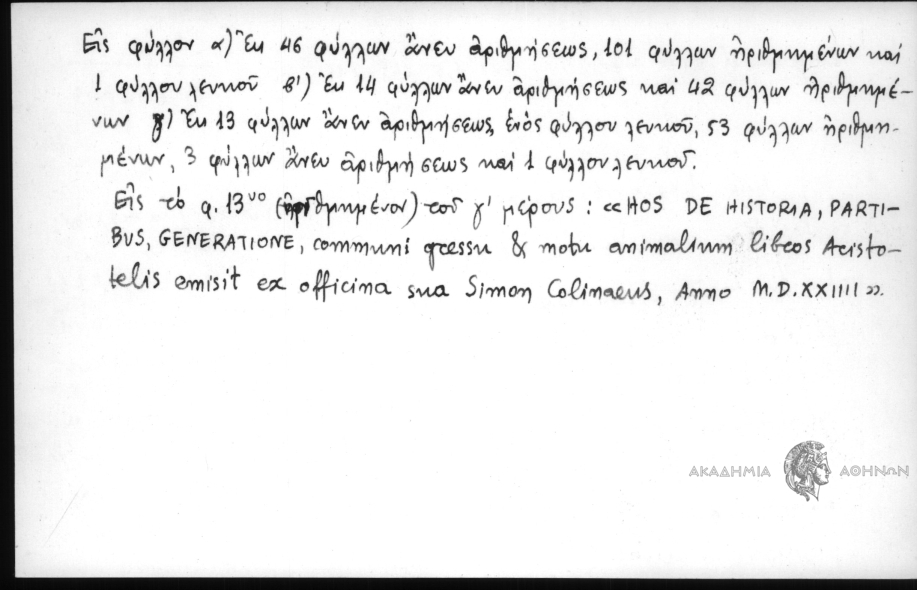 Εἰς φύλλον α) Ἐκ 46 φύλλων ἄνευ ἀριθμήσεως, 101 φύλλων ἠριθμημένων καὶ
1 φύλλου λευκοῦ β') Ἐκ 14 φύλλων ἄνευ ἀριθμήσεως καὶ 42 φύλλων ἠριθμημέ-
νων γ) Ἐκ 13 φύλλων ἄνευ ἀριθμήσεως, ἑνὸς φύλλου λευκοῦ, 53 φύλλων ἠριθμη-
μένων, 3 φύλλων ἄνευ ἀριθμήσεως καὶ 1 φύλλου λευκοῦ.
Εἰς τὸ φ. 13νο (ἠριθμημένον) τοῦ γ' μέρους : «HOS DE HISTORIA, PARTI-
BUS, GENERATIONE, communi gressu & motu animalium libros Aristo-
telis emisit ex officina sua Simon Colinaeus, Anno M.D.XXIIII».
ΑΚΑΔΗΜΙΑ ΑΘΗΝΩΝ